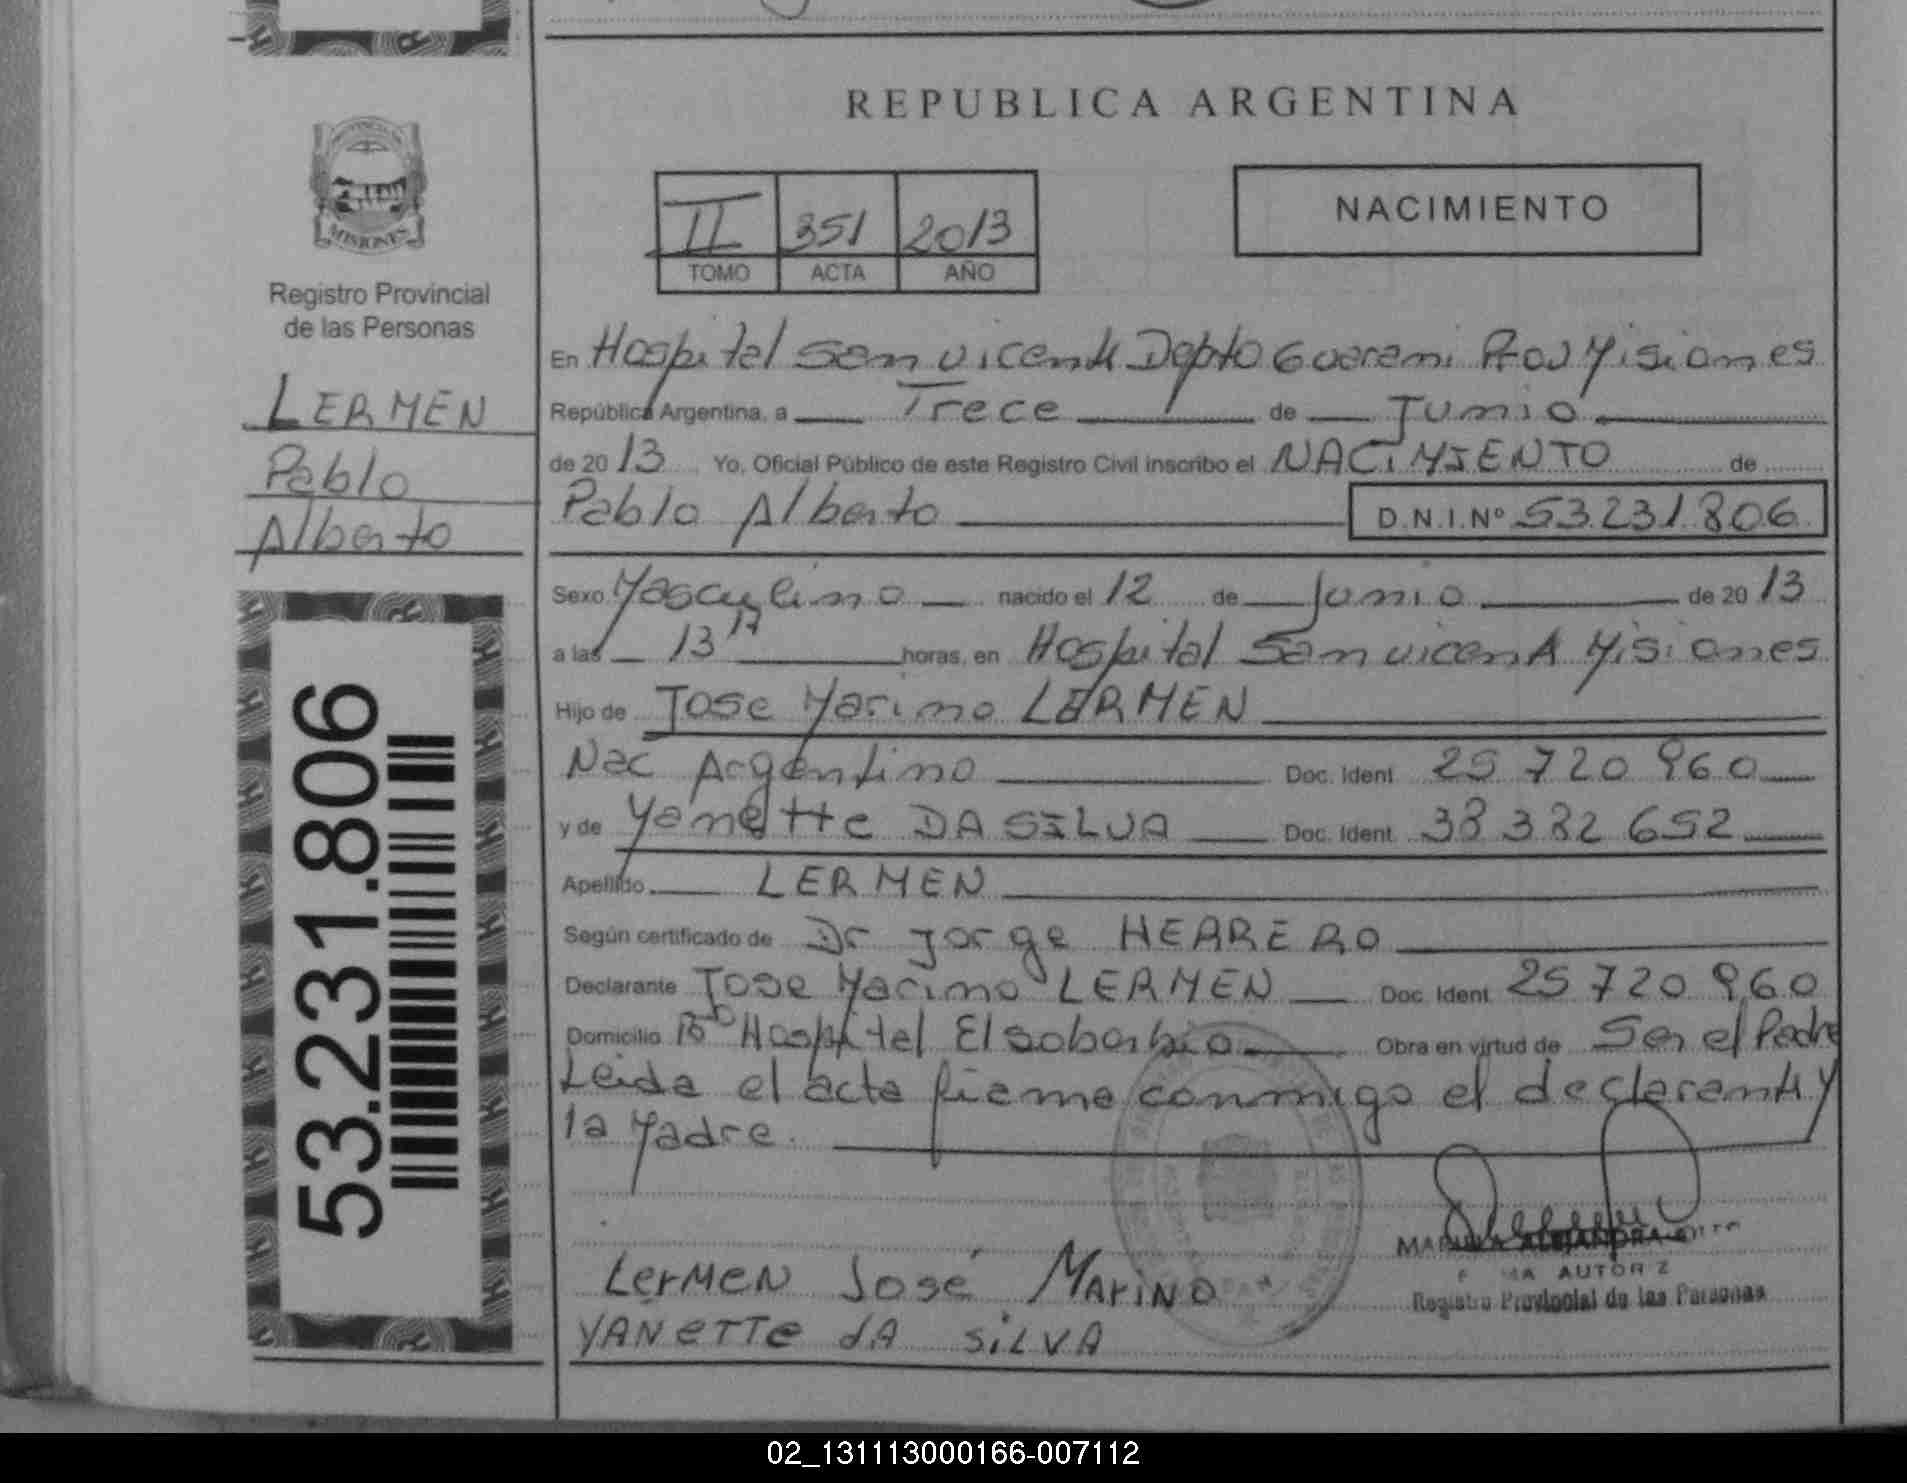 REPUBLICA ARGENTINA
II 351 2013
TOMO ACTA AÑO
NACIMIENTO
MISIONES
Registro Provincial
de las Personas
LERMEN
Pablo
Alberto
53.231.806
En Hospital San Vicente Depto Guarani Prov Misiones
República Argentina, a Trece de Junio
de 2013 Yo, Oficial Público de este Registro Civil inscribo el NACIMIENTO de
Pablo Alberto D.N.I.Nº 53.231.806
Sexo Masculino nacido el 12 de Junio de 2013
a las 13 17 horas, en Hospital San Vicente Misiones
Hijo de Jose Marino LERMEN
Nac Argentino Doc. Ident. 25 720 960
y de Yanette DA SILVA Doc. Ident. 38 382 652
Apellido LERMEN
Según certificado de Dr Jorge HERRERO
Declarante Jose Marino LERMEN Doc. Ident. 25 720 960
Domicilio Bº Hospital El soberbio Obra en virtud de Ser el Padre
Leida el acta firma conmigo el declarante y
la Madre.
LerMEN José MAriNO
YANETTe dA SiLVA
AUTORIZ
Registro Provincial de las Personas
02_131113000166-007112